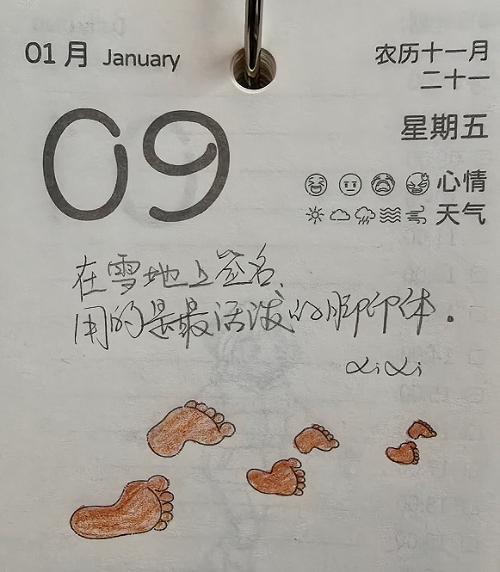 01月 January
农历十一月
二十一
09
星期五
心情
天气
在雪地上签名,
用的是最活泼的脚印体。
LiLi